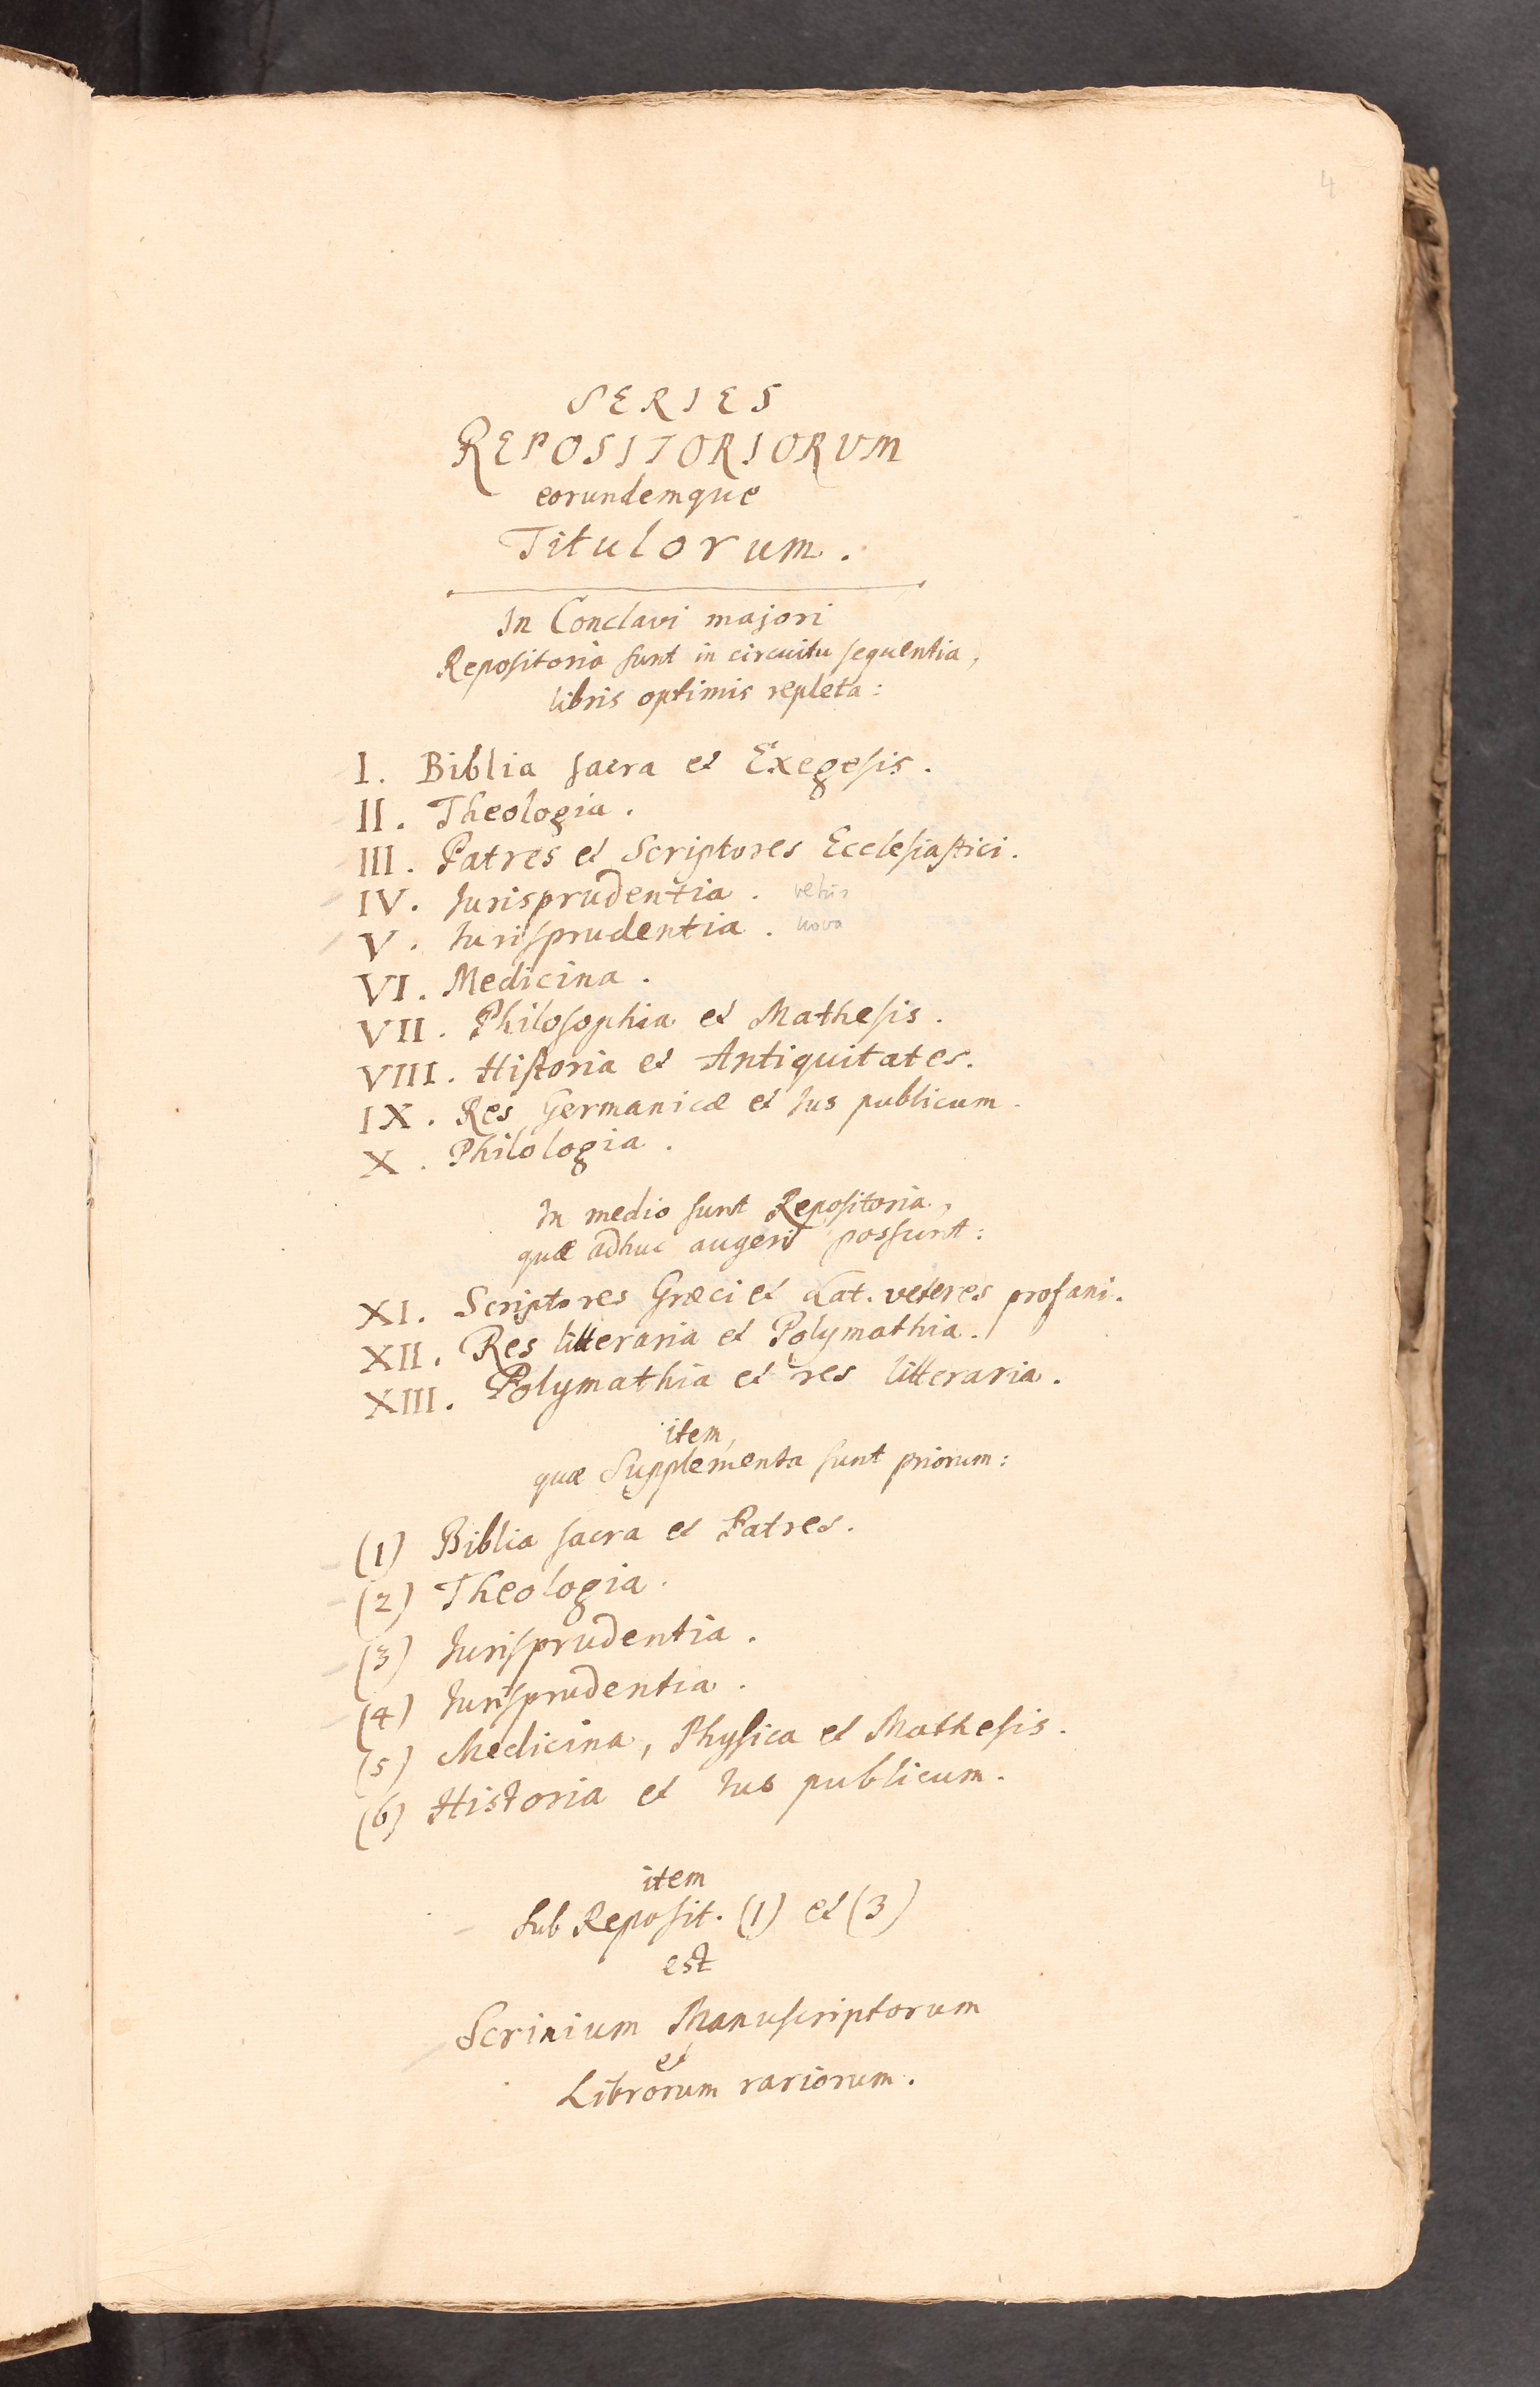 4
SERIES
REPOSITORIORUM
eorundemque
Titulorum.
In Conclavi majori
Repositoria sunt in circuitu sequentia,
libris optimis repleta:
I. Biblia sacra et Exegesis.
II. Theologia.
III. Patres et Scriptores Ecclesiastici.
IV. Jurisprudentia. vetus
V. Jurisprudentia. nova
VI. Medicina.
VII. Philosophia et Mathesis.
VIII. Historia et Antiquitates.
IX. Res Germanicæ et Jus publicum.
X. Philologia.
In medio sunt Repositoria,
quæ adhuc augeri possunt:
XI. Scriptores Græci et Lat. veteres profani.
XII. Res litteraria et Polymathia.
XIII. Polymathia et res litteraria.
item,
quæ Supplementa sunt priorum:
(1) Biblia sacra et Patres.
(2) Theologia.
(3) Jurisprudentia.
(4) Jurisprudentia.
(5) Medicina, Physica et Mathesis.
(6) Historia et Jus publicum.
item
sub Reposit. (1) et (3)
est
Scrinium Manuscriptorum
et
Librorum rariorum.